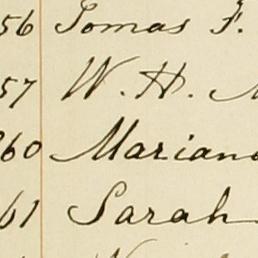 56 Tomas F.
57 W. H.
860 Mariano
61 Sarah